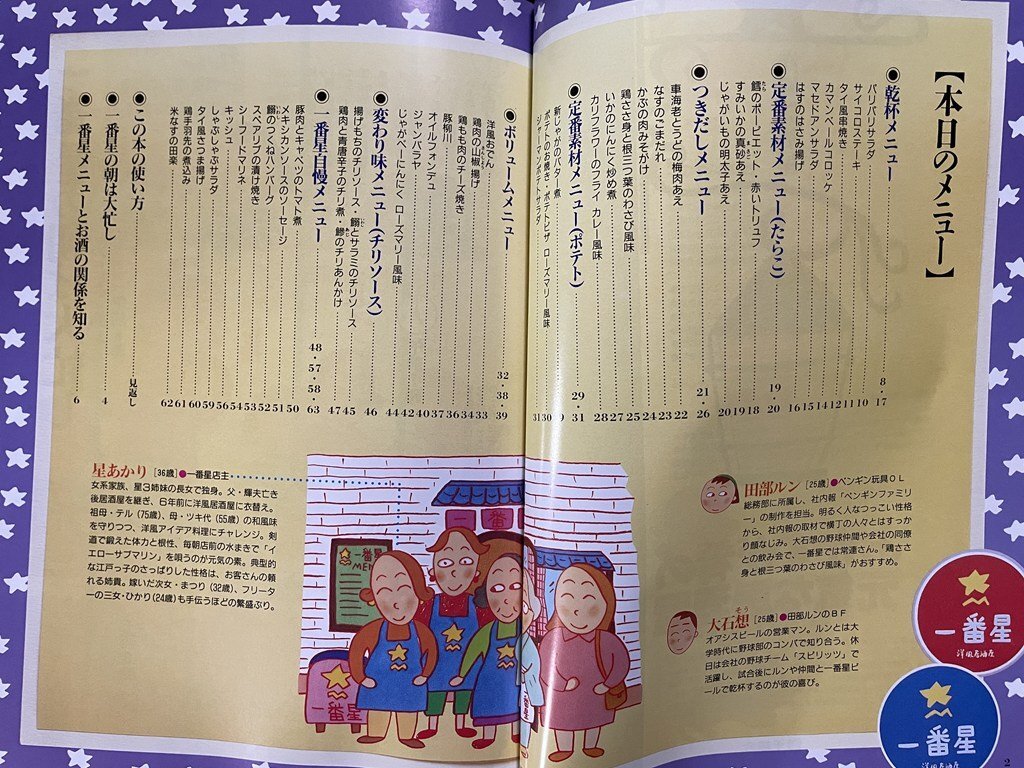 【本日のメニュー】
●乾杯メニュー……8・17
パリパリサラダ……10
サイコロステーキ……11
タイ風串焼き……12
カマンベールコロッケ……14
マセドアンサラダ……15
はすのはさみ揚げ……16
●定番素材メニュー(たらこ)……19・20
鱈のポーピエット・赤いトリュフ……18
すみいかの真砂あえ……19
じゃがいもの明太子あえ……20
●つきだしメニュー……21・26
車海老とうどの梅肉あえ……22
なすのごまだれ……23
かぶの肉みそがけ……24
鶏ささ身と根三つ葉のわさび風味……25
いかのにんにく炒め煮……27
カリフラワーのフライ カレー風味……28
●定番素材メニュー(ポテト)……29・31
新じゃがのバター煮……29
ポテトのお焼き・ポテトピザ ローズマリー風味……30
ジャーマンポテトサラダ……31
●ボリュームメニュー……32・38・39
洋風おでん……33
鶏肉の山椒揚げ……34
鶏もも肉のチーズ焼き……36
豚柳川……37
オイルフォンデュ……40
ジャンバラヤ……42
じゃがべーにんにく ローズマリー風味……44
●変わり味メニュー(チリソース)……46
揚げもちのチリソース・鰯とサラミのチリソース……45
鶏肉と青唐辛子のチリ煮・鯵のチリあんかけ……47
●一番星自慢メニュー……48・57・58・63
豚肉とキャベツのトマト煮……50
メキシカンソースのソーセージ……51
鰯のつくねハンバーグ……52
スペアリブの漬け焼き……53
シーフードマリネ……54
キッシュ……56
しゃぶしゃぶサラダ……59
タイ風さつま揚げ……60
鶏手羽先の煮込み……61
米なすの田楽……62
●この本の使い方……見返し
●一番星の朝は大忙し……4
●一番星メニューとお酒の関係を知る……6
田部ルン [25歳]●ペンギン玩具OL
総務部に所属し、社内報「ペンギンファミリ
ー」の制作を担当。明るく人なつっこい性格
から、社内報の取材で横丁の人々とはすっか
り顔なじみ。大石想の野球仲間や会社の同僚
との飲み会で、一番星では常連さん。「鶏ささ
身と根三つ葉のわさび風味」がおすすめ。
大石想 [25歳]●田部ルンのBF
オアシスビールの営業マン。ルンとは大
学時代に野球部のコンパで知り合う。休
日は会社の野球チーム「スピリッツ」で
活躍し、試合後にルンや仲間と一番星ビ
ールで乾杯するのが彼の喜び。
星あかり [36歳]●一番星店主
女系家族、星3姉妹の長女で独身。父・輝夫亡き
後居酒屋を継ぎ、6年前に洋風居酒屋に衣替え。
祖母・テル(75歳)、母・ツキ代(55歳)の和風味
を守りつつ、洋風アイデア料理にチャレンジ。剣
道で鍛えた体力と根性、毎朝店前の水まきで「イ
エローサブマリン」を唄うのが元気の素。典型的
な江戸っ子のさっぱりした性格は、お客さんの頼
れる姉貴。嫁いだ次女・まつり(32歳)、フリータ
ーの三女・ひかり(24歳)も手伝うほどの繁盛ぶり。
一番
一番星
MENU
一番星
一番星
洋風居酒屋
一番星
洋風居酒屋
2